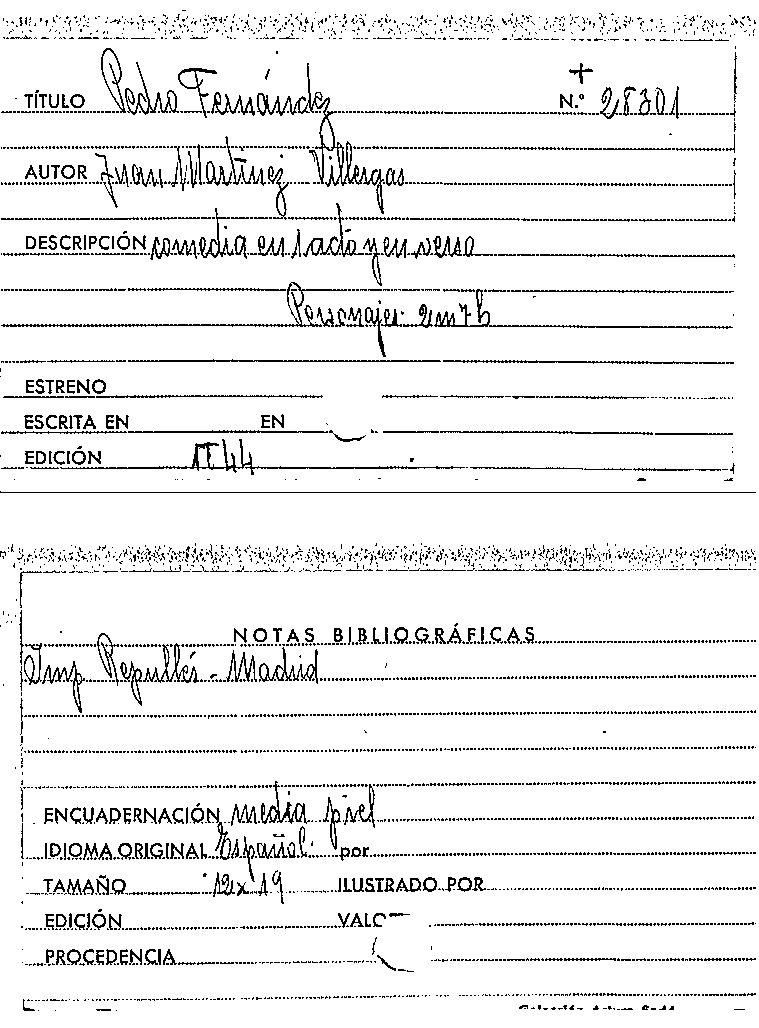 +
TÍTULO Pedro Fernández N.º 28301
AUTOR Juan Martínez Villergas
DESCRIPCIÓN comedia en 1 acto y en verso
Personajes: 2m 7h
ESTRENO
ESCRITA EN EN
EDICIÓN 1844
NOTAS BIBLIOGRÁFICAS
Imp Repullés - Madrid
ENCUADERNACIÓN media piel
IDIOMA ORIGINAL Español. por
TAMAÑO 12x19 ILUSTRADO POR
EDICIÓN
PROCEDENCIA